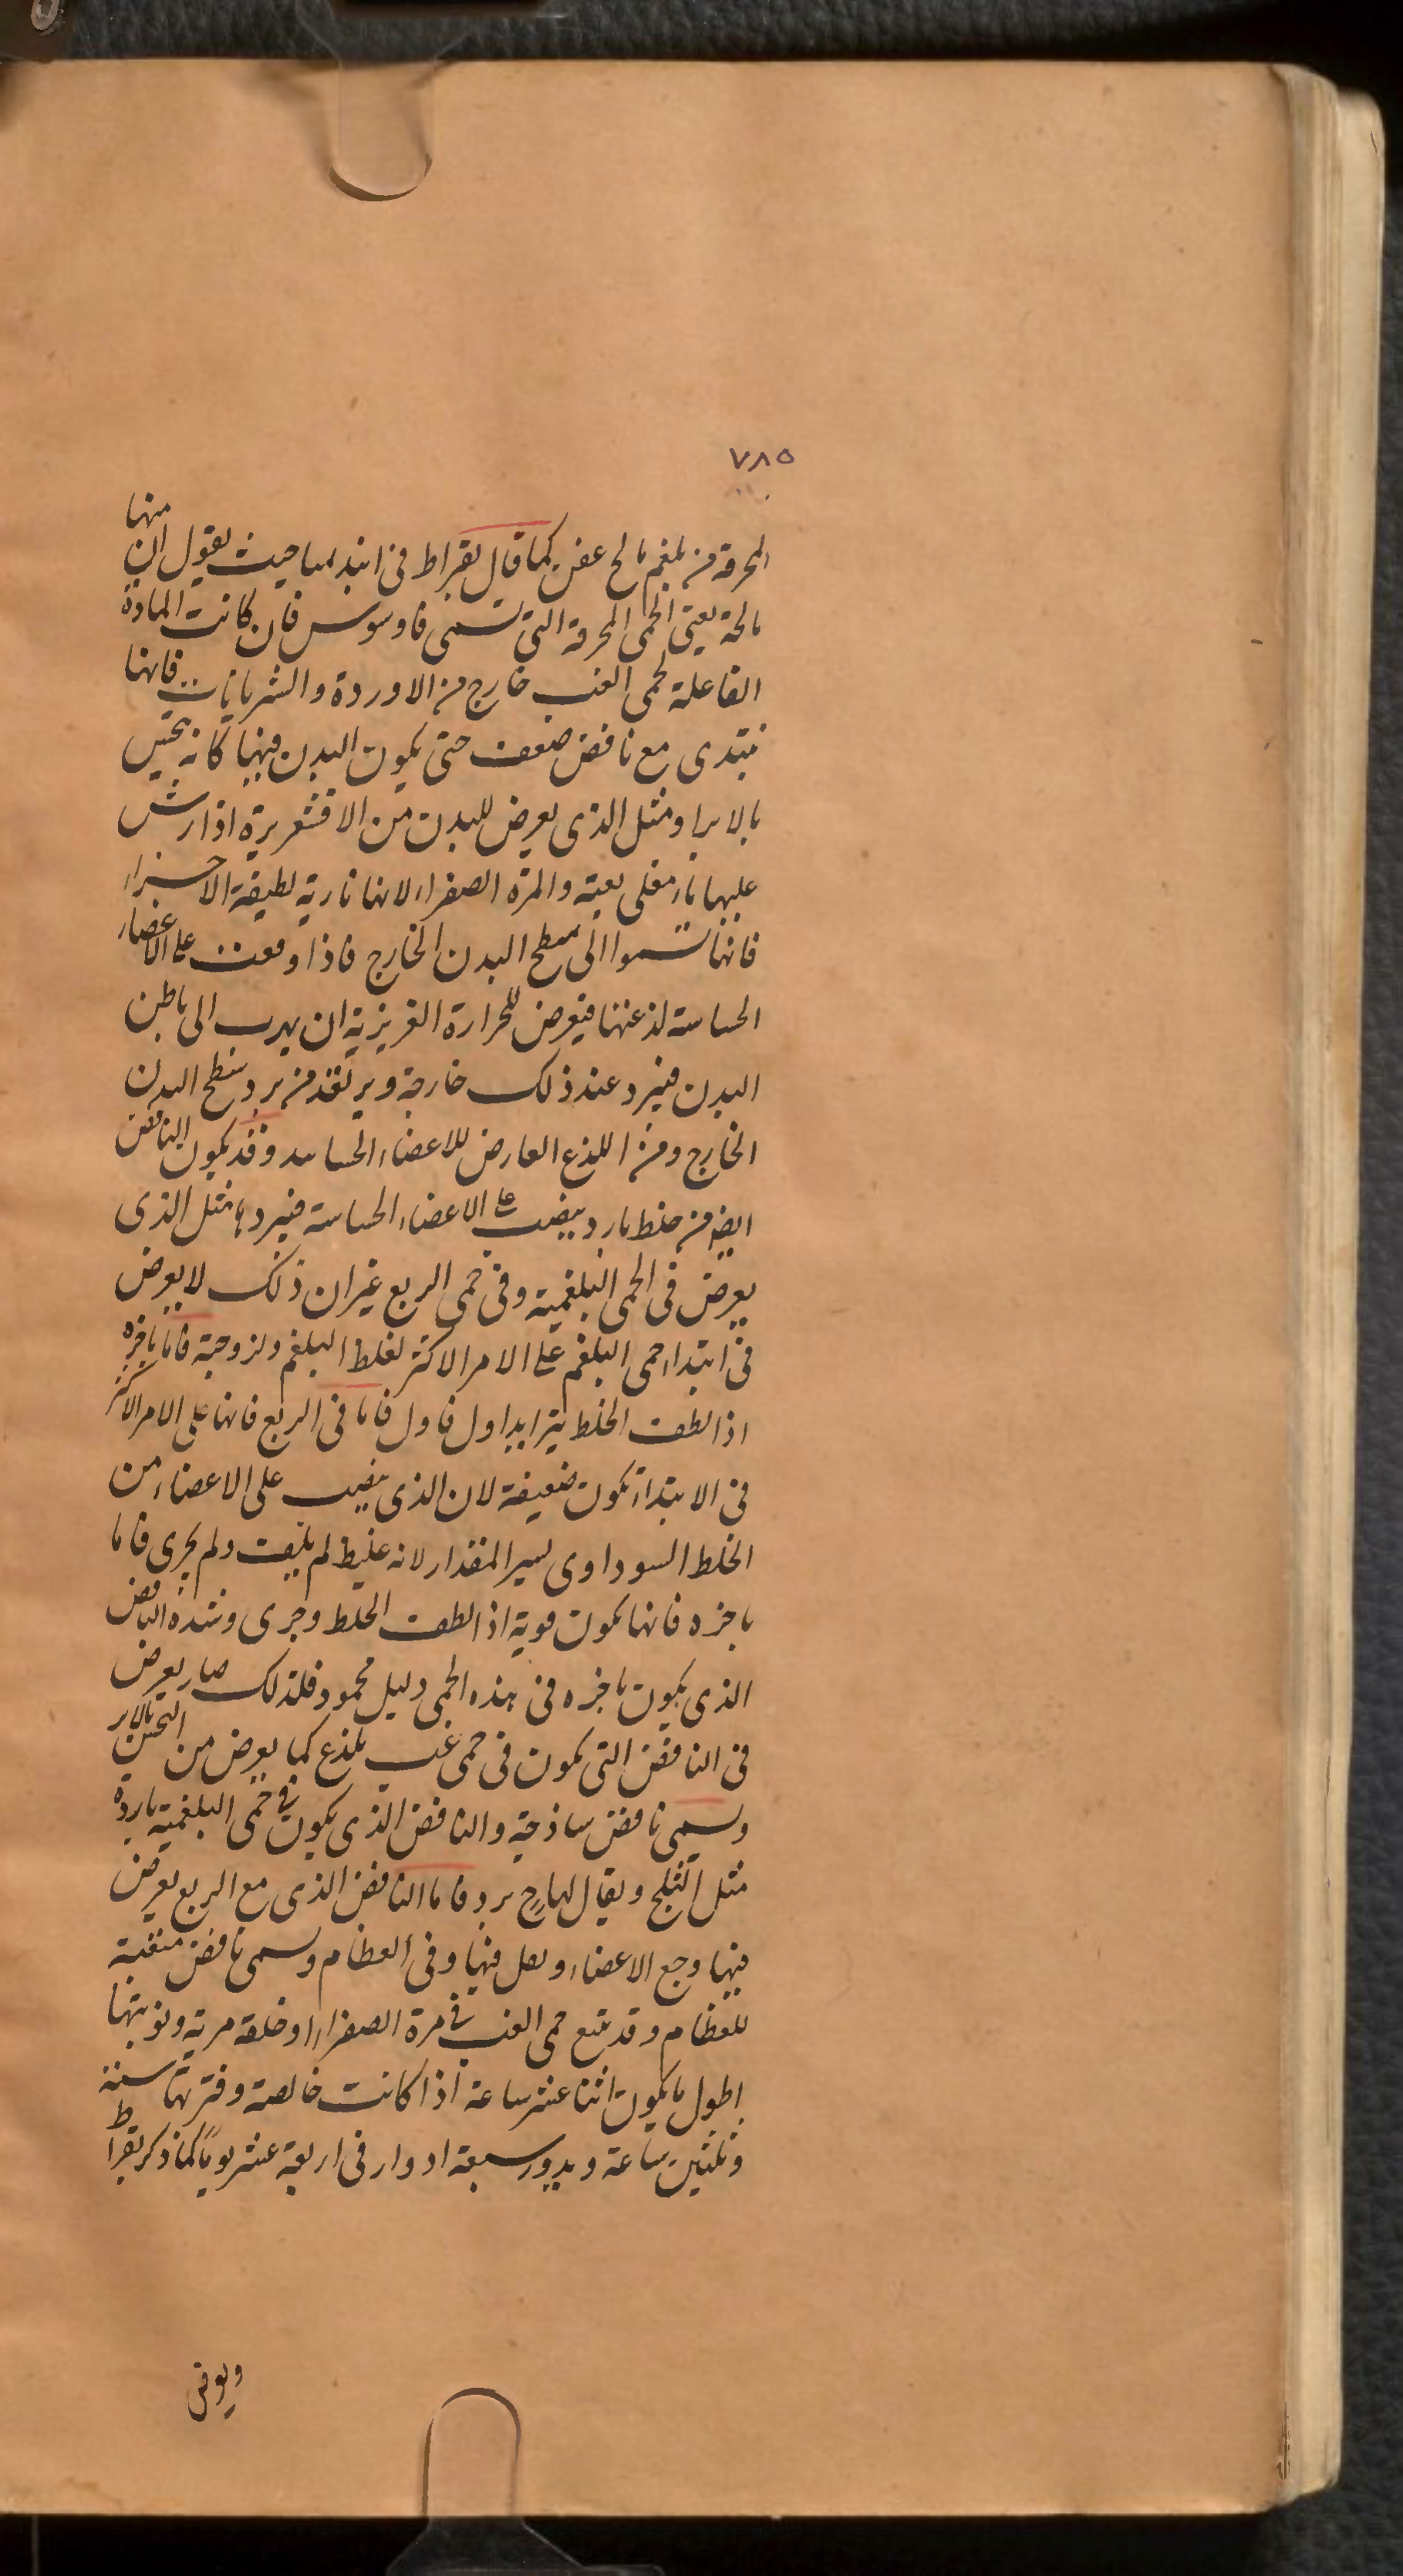 ٧٨٥
منها
المحرقة من بلغم مالح عفن كما قال بقراط فى ابيديميا حيث يقول ان
مالحة يعنى الحمى المحرقة التى تسمى قاوسوس فان كانت المادة
الفاعلة لحمى الغب خارج من الاوردة والشريانات فانها
تبتدى مع نافض صعب حتى يكون البدن فيها كانه يحس
بالابر او مثل الذى يعرض للبدن من الاقشعريرة اذا رش
عليها نار مغلى بغتة والمرة الصفراء لانها نارية لطيفة الاجزاء
فانها تسموا الى سطح البدن الخارج فاذا وقعت على الاعضاء
الحساسة لذعتها فيعرض للحرارة الغريزية ان يهرب الى باطن
البدن فيبرد عند ذلك خارجة ويرتعد من برد سطح البدن
الخارج ومن اللذع العارض للاعضاء الحساسه وقد يكون النافض
ايضا من خلط بارد ينصب على الاعضاء الحساسة فيبردها مثل الذى
يعرض فى الحمى البلغمية وفى حمى الربع غير ان ذلك لا يعرض
فى ابتداء حمى البلغم على الامر الاكثر لغلظ البلغم ولزوجته فاما باخره
اذا لطف الخلط يتزايد اول فاول فاما فى الربع فانها على الامر الاكثر
فى الابتداء تكون ضعيفة لان الذى ينصب على الاعضاء من
الخلط السوداوى يسير المقدار لانه غليظ لم يلطف ولم يجرى فاما
باخره فانها تكون قوية اذا لطف الخلط وجرى وشدة النافض
الذى يكون باخره فى هذه الحمى دليل محمود فلذلك صار يعرض
فى النافض التى تكون فى حمى غب يلذع كما يعرض من النخس بالابر
وتسمى نافض ساذجة والنافض الذى يكون فى حمى البلغمية باردة
مثل الثلج ويقال لها برد فاما النافض الذى مع الربع يعرض
فيها وجع الاعضاء وفى العظام وتسمى نافض مثقبة
للعظام وقد تتبع حمى الغب فى مرة الصفراء او خلقة مرية ونوبتها
اطول ما يكون اثنا عشر ساعة اذا كانت خالصة وفترتها ستة
وثلثين ساعة ويدور سبعة ادوار فى اربعة عشر يوما كما ذكر بقراط